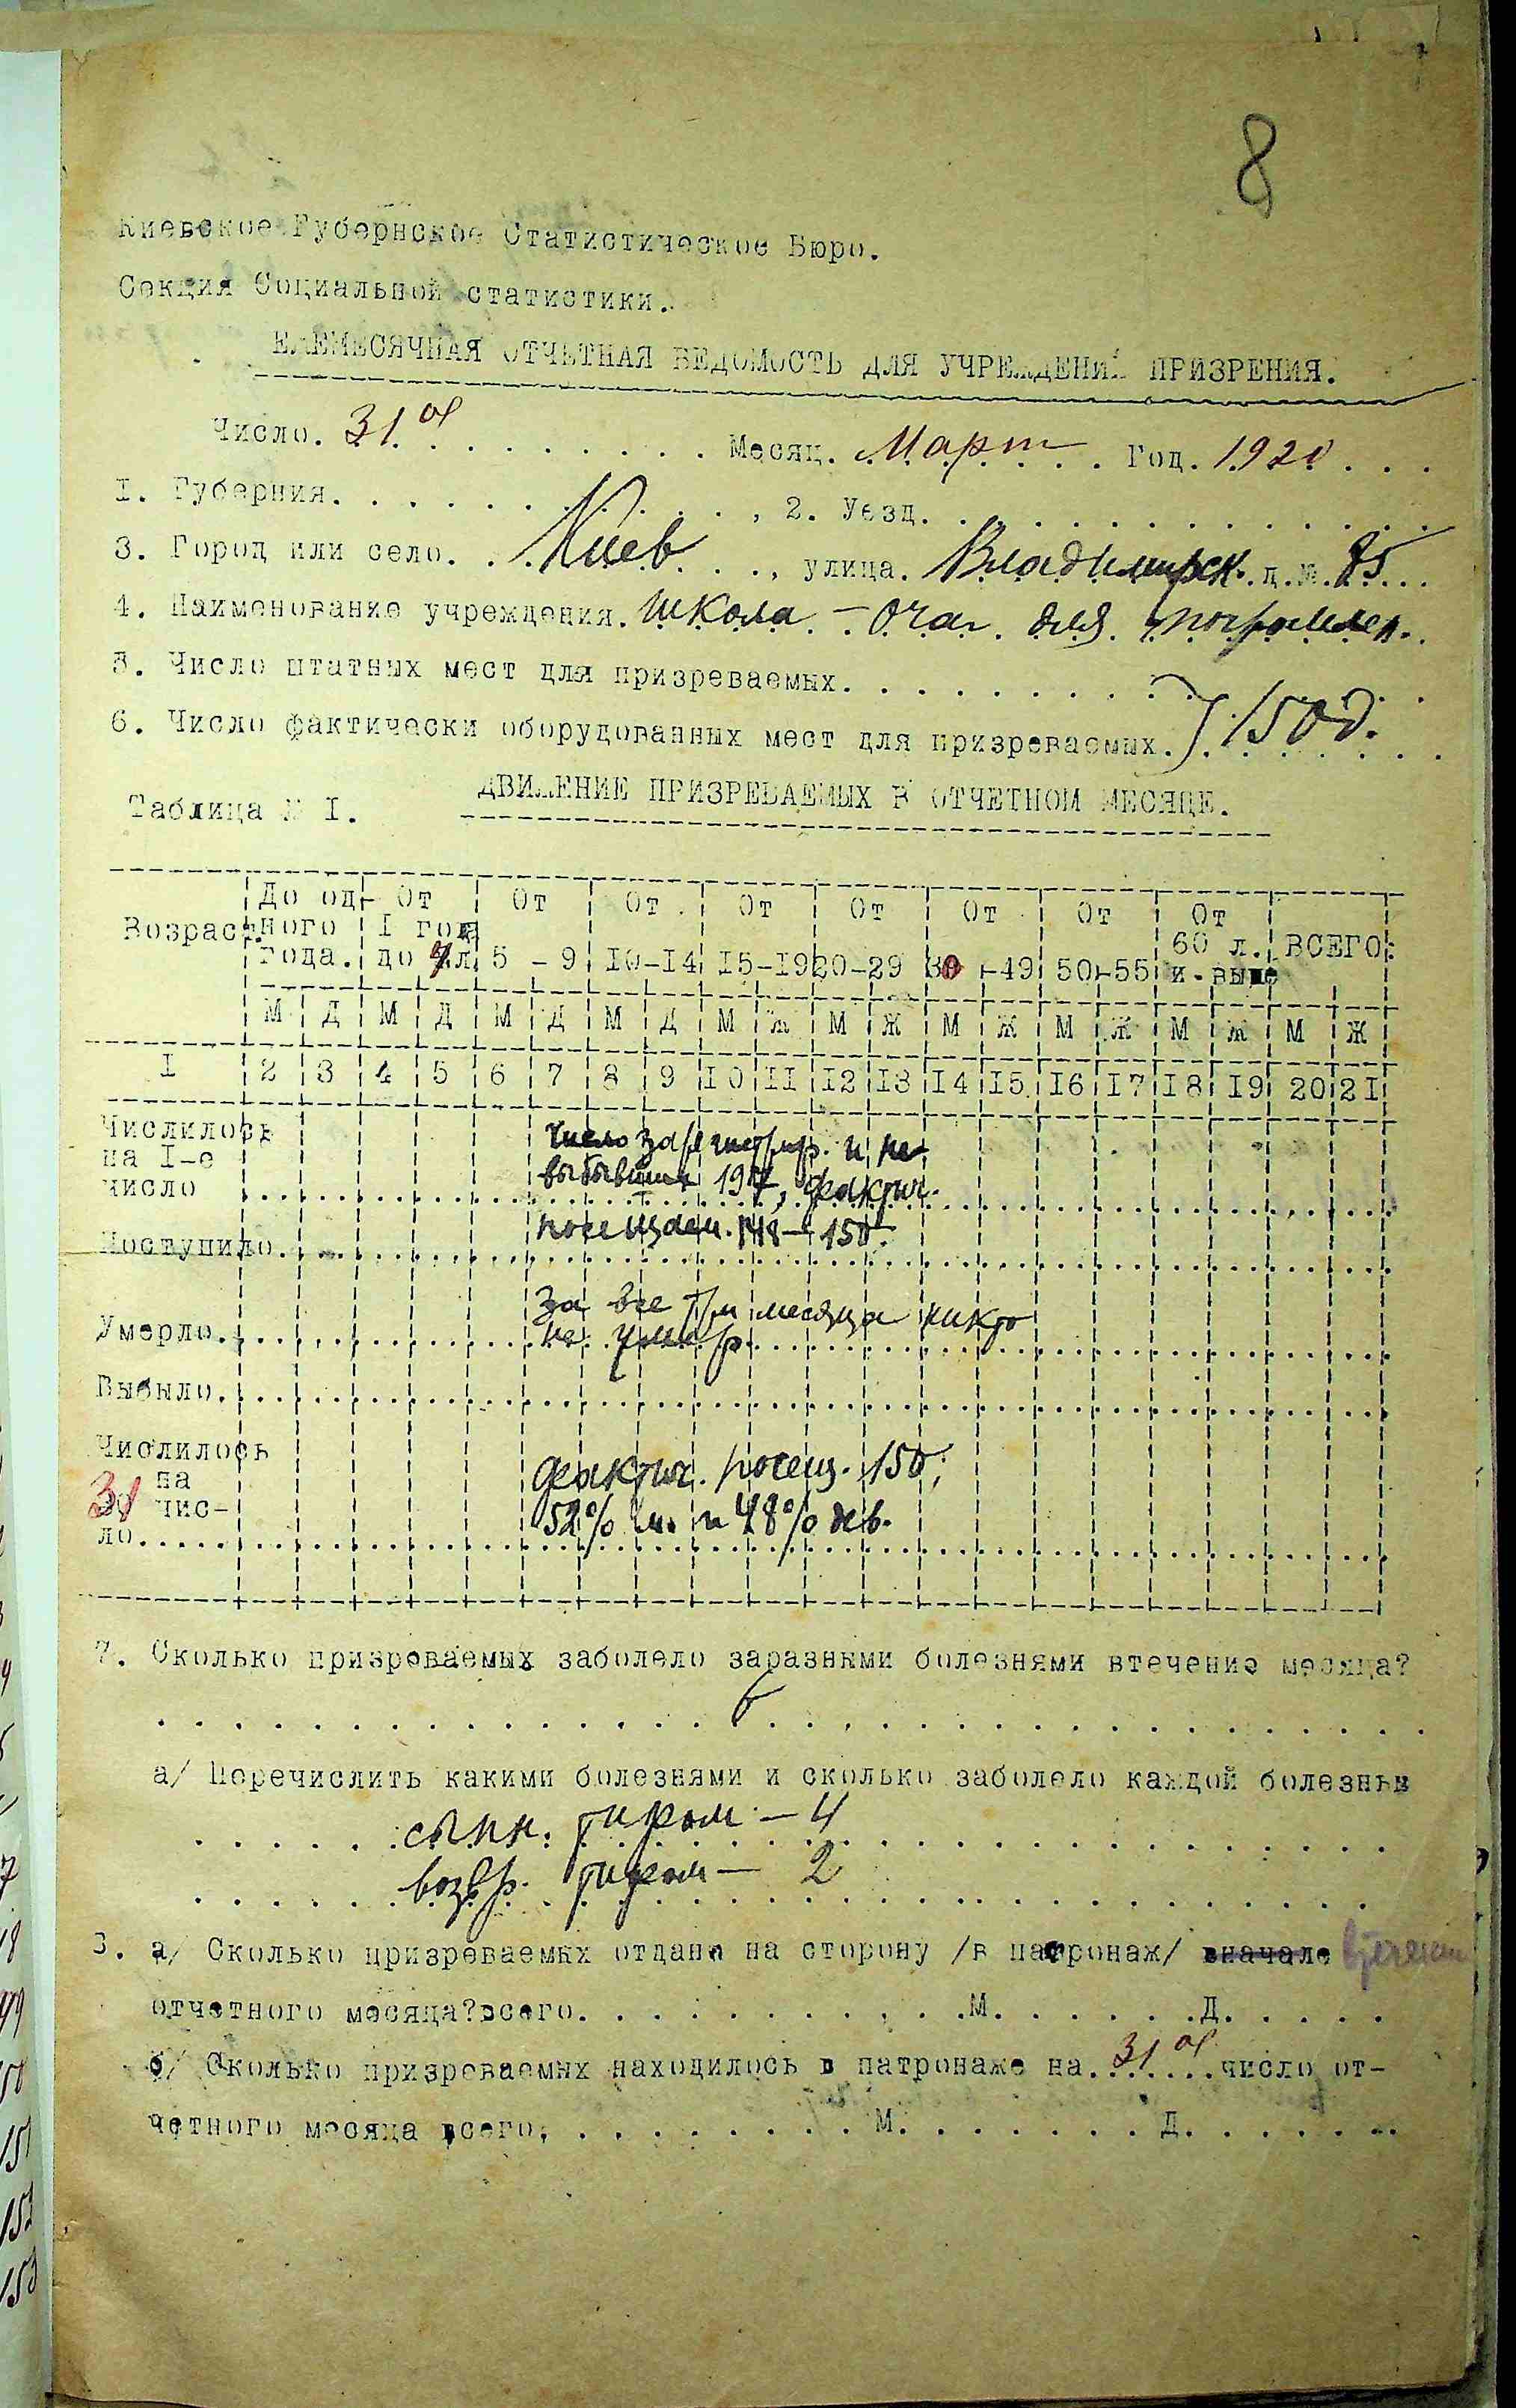 8
Киевское Губернское Статистическое Бюро.
Секция Социальной статистики.
ЕЖЕМЕСЯЧНАЯ ОТЧЕТНАЯ ВЕДОМОСТЬ ДЛЯ УЧРЕЖДЕНИЙ ПРИЗРЕНИЯ.
Число. 31 Месяц. Март Год. 1920
1. Губерния. , 2. Уезд.
3. Город или село. Киев, улица. Владимирск. д.№. 85
4. Наименование учреждения. школа - очаг для погромлен.
5. Число штатных мест для призреваемых.
6. Число фактически оборудованных мест для призреваемых. } 150 д.
Таблица № I. ДВИЖЕНИЕ ПРИЗРЕВАЕМЫХ В ОТЧЕТНОМ МЕСЯЦЕ.
До од- От От От От От От От От
Возраст. ного I года 60 л. ВСЕГО:
года. до 4 л 5 - 9 10-14 15-19 20-29 30 -49 50-55 и-выше
М Д М Д М Д М Д М Ж М Ж М Ж М Ж М Ж М Ж
I 2 3 4 5 6 7 8 9 10 11 12 13 14 15 16 17 18 19 20 21
Числилось число зарегистрир. и не
на I-е выбывших 197, фактич.
число
посещаем. 148-150
Поступило.
За все три месяца никто
Умерло. не умер.
Выбыло.
Числилось
на фактич. посещ. 150;
31 чис- 52% м. и 48% дев.
ло
7. Сколько призреваемых заболело заразными болезнями втечение месяца?
6
а/ Перечислить какими болезнями и сколько заболело каждой болезнью
сыпн. тифом - 4
возвр. тифом - 2
8. а/ Сколько призреваемых отдано на сторону /в патронаж/ вначале
отчетного месяца?всего. М. Д.
б/ Сколько призреваемых находилось в патронаже на. 31 число от-
четного месяца всего. М. Д.
151
152
153